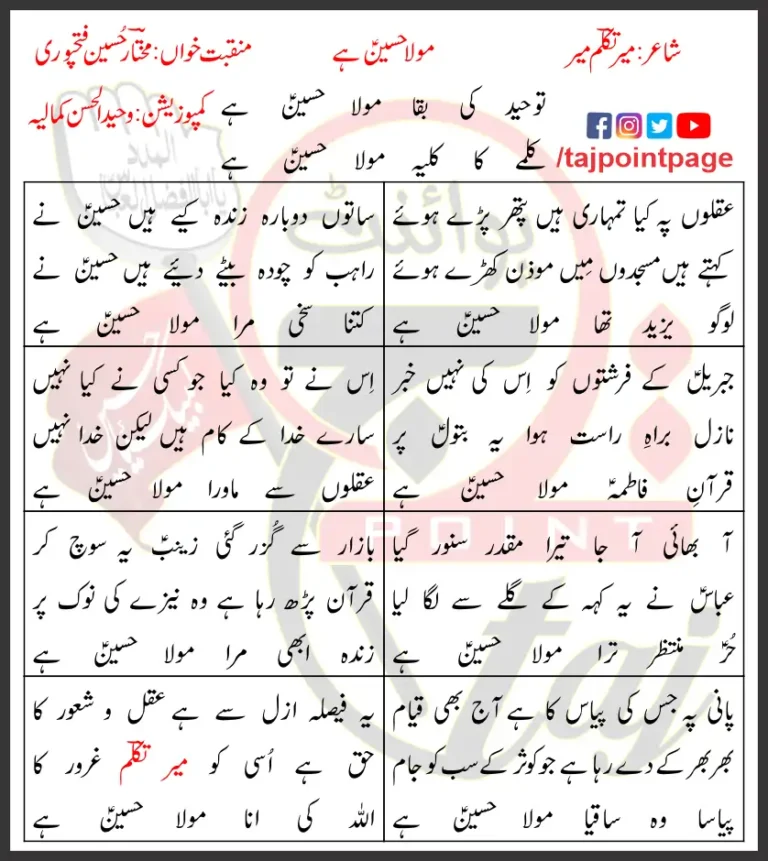 شاعر: میر تکلمؔ میر
مولا حسینؑ ہے
منقبت خواں: مختار حُسین فتحپوری
توحید کی بقا مولا حسینؑ ہے
کمپوزیشن: وحید الحسن کمالیہ
کلمے کا کلیہ مولا حسینؑ ہے
/tajpointpage
عقلوں پہ کیا تمہاری ہیں پتھر پڑے ہوئے
کہتے ہیں مسجدوں مِیں موذن کھڑے ہوئے
لوگو یزید تھا مولا حسینؑ ہے
ساتوں دوبارہ زندہ کیے ہیں حسینؑ نے
راہب کو چودہ بیٹے دئیے ہیں حسینؑ نے
کتنا سخی مرا مولا حسینؑ ہے
جبریلؑ کے فرشتوں کو اِس کی نہیں خبر
نازل براہِ راست ہوا یہ بتولؑ پر
قرآنِ فاطمہؑ مولا حسینؑ ہے
اِس نے تو وہ کیا جو کسی نے کیا نہیں
سارے خدا کے کام ہیں لیکن خدا نہیں
عقلوں سے ماورا مولا حسینؑ ہے
آ بھائی آ جا تیرا مقدر سنور گیا
عباسؑ نے یہ کہہ کے گلے سے لگا لیا
حُرؑ منتظر ترا مولا حسینؑ ہے
بازار سے گُزر گئی زینبؑ یہ سوچ کر
قرآن پڑھ رہا ہے وہ نیزے کی نوک پر
زندہ ابھی مرا مولا حسینؑ ہے
پانی پہ جس کی پیاس کا ہے آج بھی قیام
بھر بھر کے دے رہا ہے جو کوثر کے سب کو جام
پیاسا وہ ساقیا مولا حسینؑ ہے
یہ فیصلہ ازل سے ہے عقل و شعور کا
حق ہے اُسی کو میر تکلمؔ غرور کا
اللہ کی انا مولا حسینؑ ہے
پوائنٹ
POINT
taj